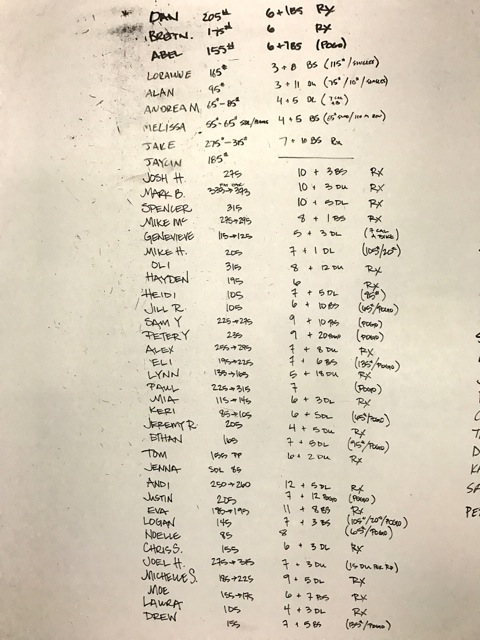 DAN 205# 6+1BS RX
BROTN. 175# 6 RX
ABEL 155# 6+7BS (POGO)
LORAINNE 165# 3+8 BS (115#/SINGLES)
ALAN 95# 3+11 DU (75#/10#/SINGLES)
ANDREA M 65#-85# 4+5 DL
MELISSA 55#-65# 4+5 BS
JAKE 275#-315# 7+10 BS RX
JAYLIN 185#
JOSH H. 275 10 + 3 BS RX
MARK B. 335→375 10 + 3 DU RX
SPENCER 315 10 + 5 DL RX
MIKE MC 275→295 8 + 1 BS RX
GENEVIEVE 115→125 5 + 3 DL (7 CAL A BIKE)
MIKE H. 205 7 + 1 DL (105#/20#)
OLI 315 8 + 12 DU RX
HAYDEN 195 6 RX
HEIDI 105 7 + 5 DL (85#)
JILL R. 105 6 + 10 BS (65#/POGO)
SAM Y 225→275 9 + 10 BS (POGO)
PETER Y 235 9 + 20 (POGO)
ALEX 255→295 7 + 8 DU RX
ELI 195→225 7 + 6 BS (135#/POGO)
LYNN 135→165 5 + 18 DU RX
PAUL 225→315 7 (POGO)
MIA 115→145 6 + 3 DL RX
KERI 85→105 6 + 5DL (65#/POGO)
JEREMY R. 205 4 + 5 DU RX
ETHAN 165 7 + 5DL (95#/POGO)
TOM 155 PP 6 + 2 DU RX
JENNA SDL 85
ANDI 250→260 12 + 5 DL RX
JUSTIN 205 7 + 12 (POGO)
EVA 185→195 11 + 8 BS RX
LOGAN 145 7 + 3 BS (105#/20#/POGO)
NOELLE 85 8 (65#/POGO)
CHRIS S. 155 6 + 3 DL RX
JOEL H. 275→315 7 + 3 DU (15 DU PER RD)
MICHELLE S. 185→225 9 + 5 DL RX
MOE 155→175 6 + 7 BS RX
LAURA 105 4 + 3 DL RX
DREW 155 7 + 5 BS (135#/POGO)